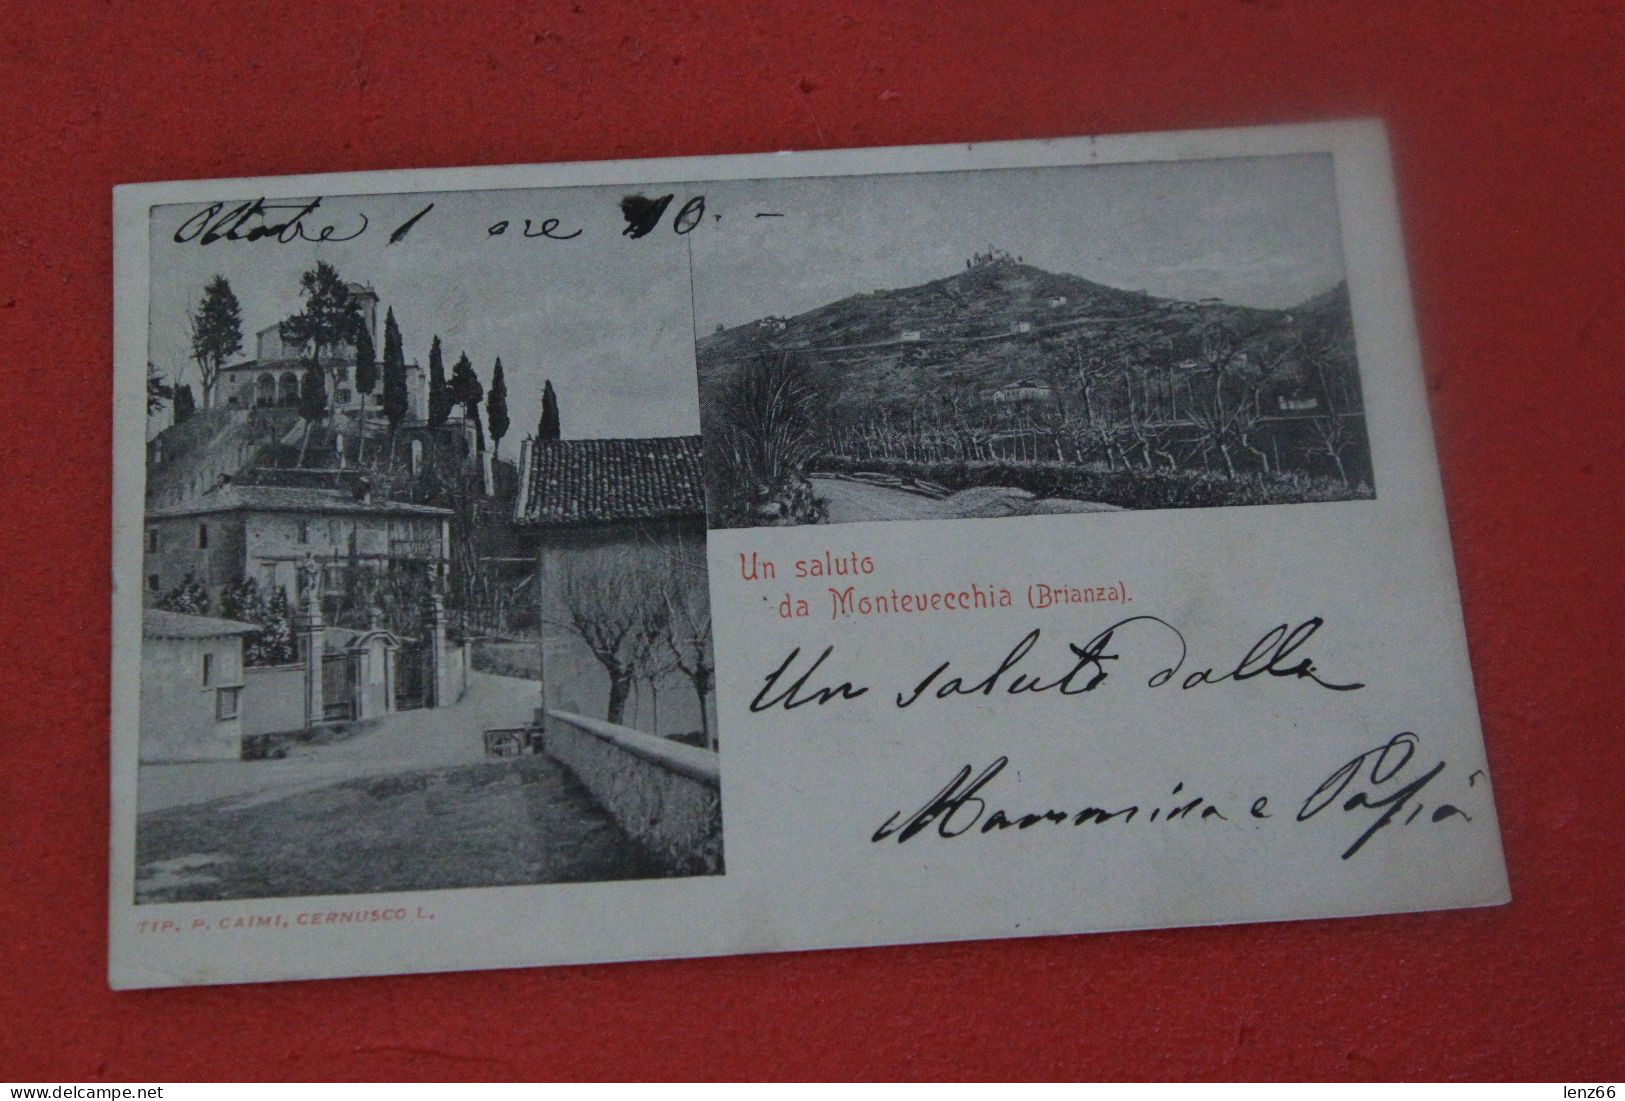 Ottobre 1 ore 10. -
Un saluto
da Montevecchia (Brianza).
Un saluto dalla
Mammina e Papà
TIP. P. CAIMI, CERNUSCO L.
delcampe.net
lenz66